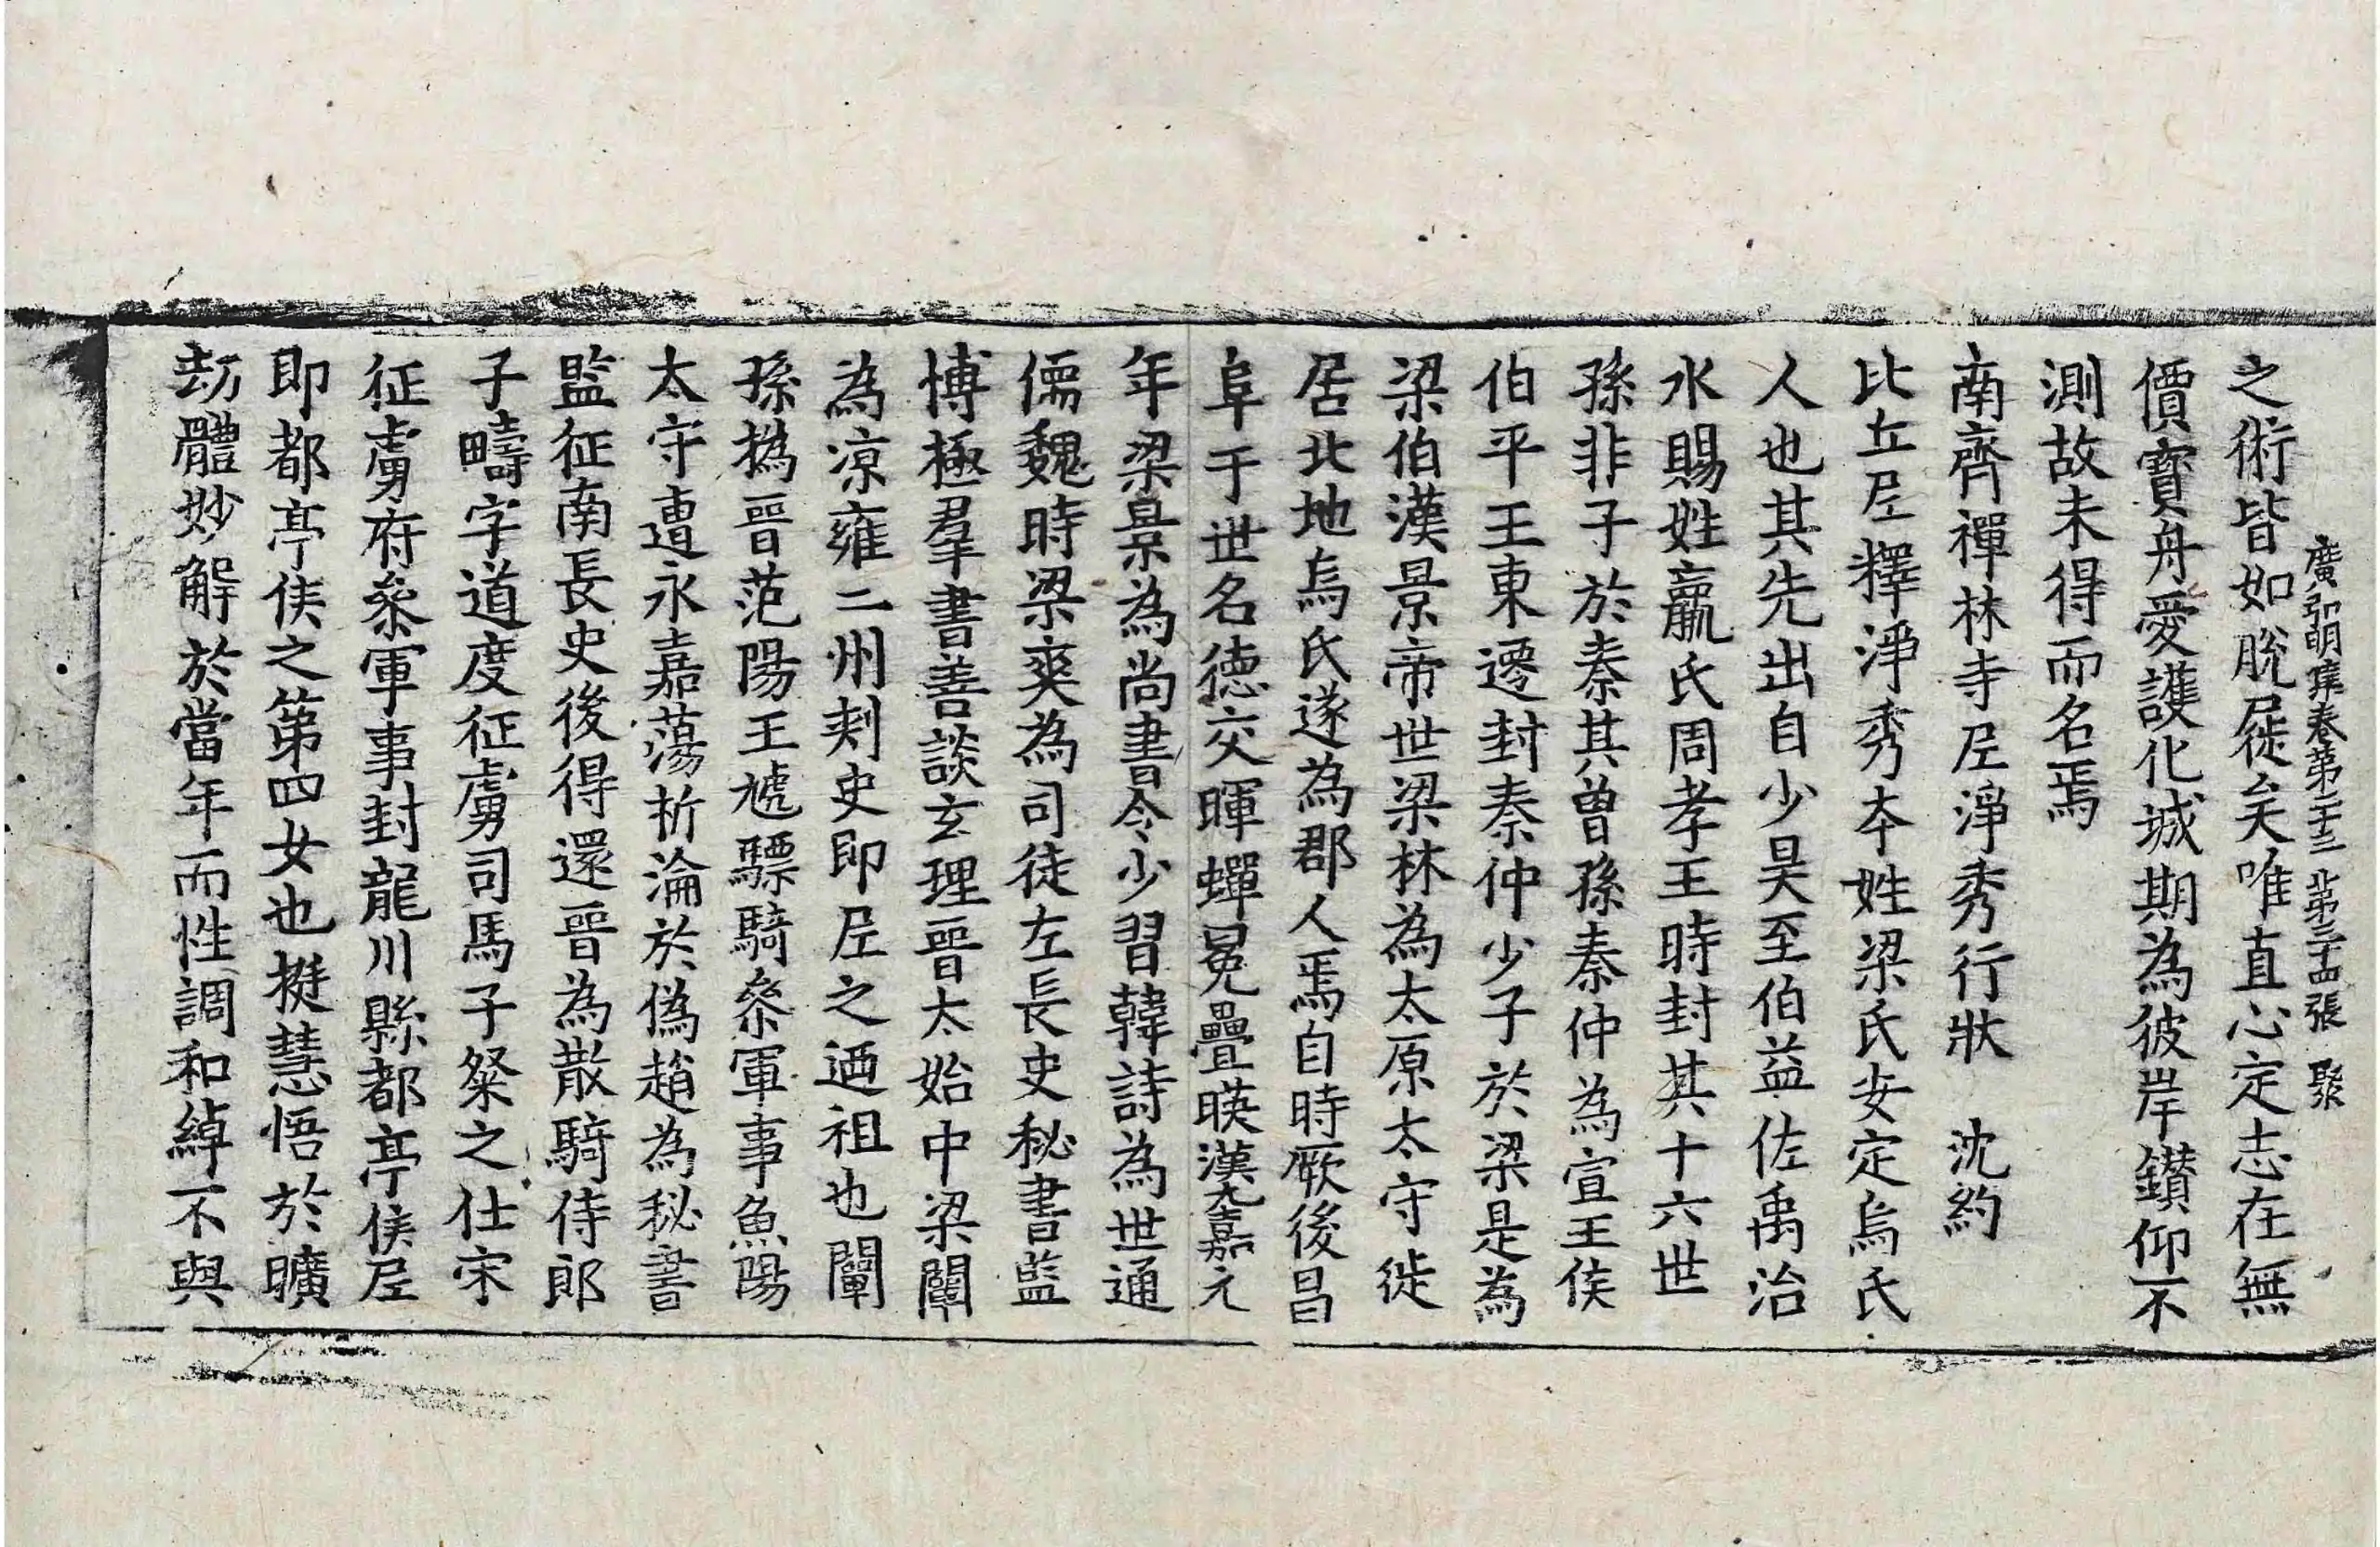 廣弘明集卷第二十三 第三十四張 聚
之術皆如脫屣矣唯直心定志在無
價寶舟愛護化城期為彼岸鑚仰不
測故未得而名焉
南齊禪林寺尼淨秀行狀 沈約
比丘尼釋淨秀夲姓梁氏安定烏氏
人也其先出自少昊至伯益佐禹治
水賜姓嬴氏周孝王時封其十六世
孫非子於秦其曾孫秦仲為宣王侯
伯平王東遷封秦仲少子於梁是為
梁伯漢景帝世梁林為太原太守徙
居北地烏氏遂為郡人焉自時厥後昌
阜于世名德交暉蟬冕疊暎漢元嘉元
年梁景為尚書令少習韓詩為世通
儒魏時梁爽為司徒左長史秘書監
博極羣書善談玄理晉太始中梁闡
為涼雍二州刾史即尼之迺祖也闡
孫撝晉范陽王虓驃騎叅軍事魚陽
太守遭永嘉蕩析淪於偽趙為秘書
監征南長史後得還晉為散騎侍郎
子疇字道度征虜司馬子粲之仕宋
征虜府叅軍事封龍川縣都亭侯尼
即都亭侯之第四女也挻慧悟於曠
劫體妙解於當年而性調和綽不與